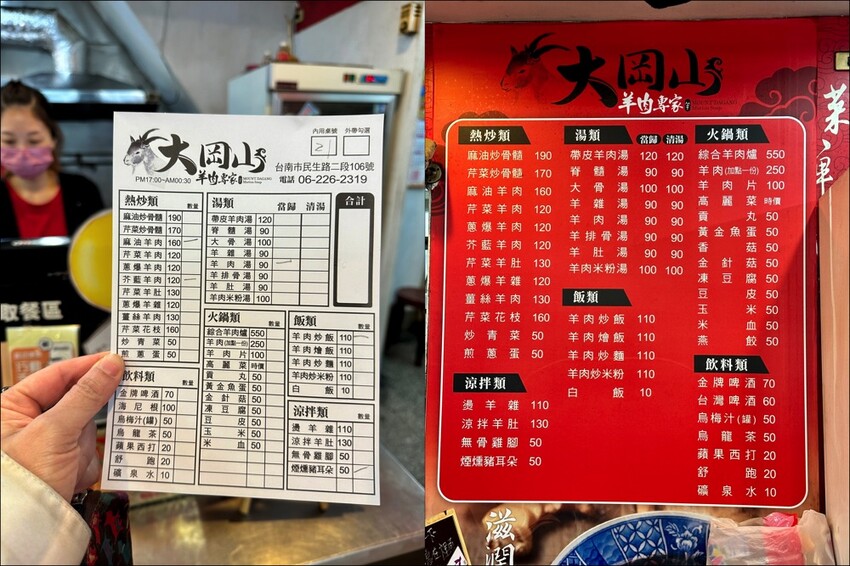 大岡山
羊肉專家
PM17:00~AM00:30
內用桌號
外帶勾選
21
台南市民生路二段106號
電話 06-226-2319
熱炒類 數量
麻油炒骨髓 190
芹菜炒骨髓 170
麻油羊肉 160
芹菜羊肉 120
蔥爆羊肉 120
芥藍羊肉 120
芹菜羊肚 130
蔥爆羊雜 120
薑絲羊肚 130
芹菜花枝 160
炒青菜 50
煎蔥蛋 50
飲料類 數量
金牌啤酒 70
海尼根 100
烏梅汁(罐) 50
烏龍茶 50
蘋果西打 20
舒跑 20
礦泉水 10
湯類 當歸 清湯
帶皮羊肉湯 120
脊髓湯 90
大骨湯 100
羊雜湯 90
羊肉湯 90
羊排骨湯 90
羊肚湯 90
羊肉米粉湯 100
合計
火鍋類 數量
綜合羊肉爐 550
羊肉(加點一份) 250
羊肉片 100
高麗菜 時價
貢丸 50
黃金魚蛋 50
金針菇 50
凍豆腐 50
豆皮 50
玉米 50
米血 50
飯類 數量
羊肉炒飯 110
羊肉燴飯 110
羊肉炒麵 110
羊肉炒米粉 110
白飯 10
涼拌類 數量
燙羊雜 110
涼拌羊肚 130
無骨雞腳 50
煙燻豬耳朵 50
取餐區
大岡山
羊肉專家
熱炒類
麻油炒骨髓 190
芹菜炒骨髓 170
麻油羊肉 160
芹菜羊肉 120
蔥爆羊肉 120
芥藍羊肉 120
芹菜羊肚 130
蔥爆羊雜 120
薑絲羊肚 130
芹菜花枝 160
炒青菜 50
煎蔥蛋 50
涼拌類
燙羊雜 110
涼拌羊肚 130
無骨雞腳 50
煙燻豬耳朵 50
湯類 當歸 清湯
帶皮羊肉湯 120 120
脊髓湯 90 90
大骨湯 100 100
羊雜湯 90 90
羊肉湯 90 90
羊排骨湯 90 90
羊肚湯 90 90
羊肉米粉湯 100 100
飯類
羊肉炒飯 110
羊肉燴飯 110
羊肉炒麵 110
羊肉炒米粉 110
白飯 10
火鍋類
綜合羊肉爐 550
羊肉(加點一份) 250
羊肉片 100
高麗菜 時價
貢丸 50
黃金魚蛋 50
香菇 50
金針菇 50
凍豆腐 50
豆皮 50
玉米 50
米血 50
燕餃 50
飲料類
金牌啤酒 70
台灣啤酒 60
烏梅汁(罐) 50
烏龍茶 50
蘋果西打 20
舒跑 20
礦泉水 10
菜單
滋潤